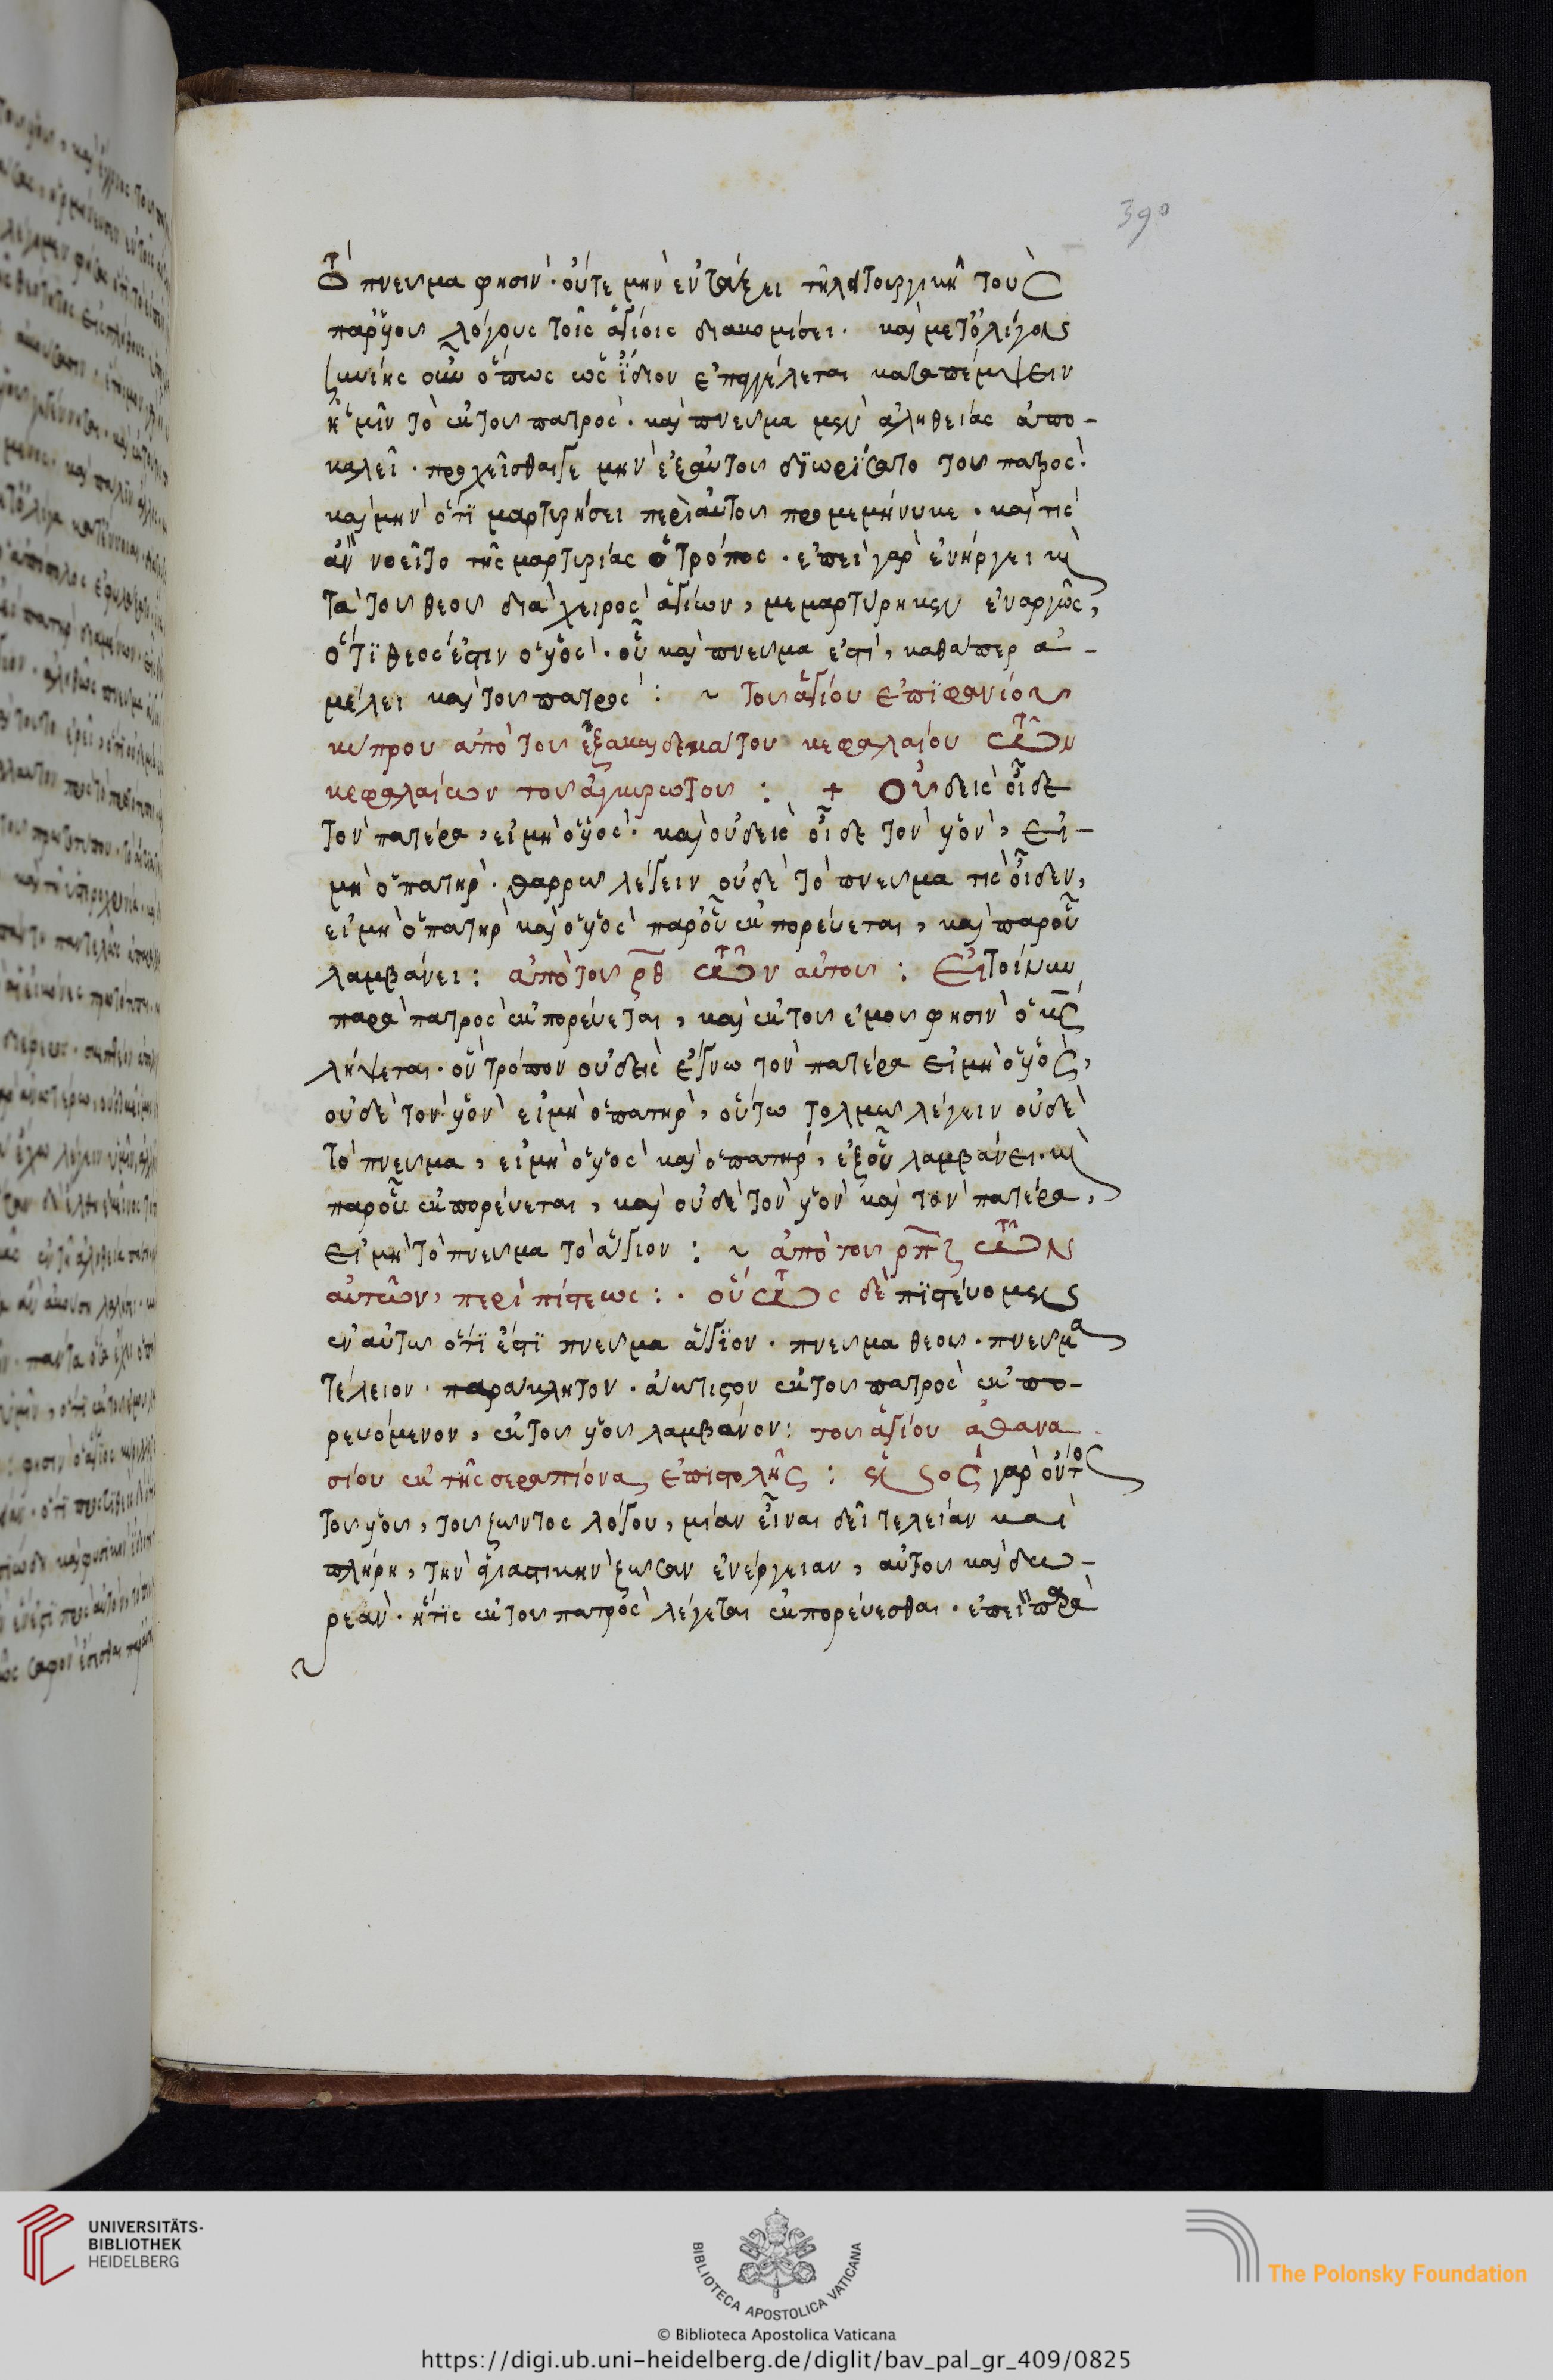 390
τὸ πνεῦμα φησίν· οὔτε μὴν ἐν τάξει τῆ λειτουργικῆ τοὺς
παρ' υἱοῦ λόγους τοῖς ἁγίοις διακομίσει. καὶ μετ' ὀλίγον
ξυνίης οὖν ὅπως ὡς ἴδιον ἐπαγγέλεται καταπέμψειν
ἡμῖν τὸ ἐκ τοῦ πατρός. καὶ πνεῦμα μὲν ἀληθείας ἀπο-
καλεῖ. προχεῖσθαι δὲ μὴν ἐξ αὐτοῦ διωρίσατο τοῦ πατρός.
καὶ μὴν ὅτι μαρτυρήσει περὶ αὐτοῦ προμεμήνυκε. καὶ τίς
ἂν νοεῖτο τῆς μαρτυρίας ὁ τρόπος. ἐπεὶ γὰρ ἐνήργει
τὰ τοῦ θεοῦ διὰ χειρὸς ἁγίων, μεμαρτύρηκεν ἐναργῶς,
ὅτι θεός ἐστιν ὁ υἱός. οὗ καὶ πνεῦμά ἐστι, καθάπερ ἀ-
μέλει καὶ τοῦ πατρός : ~ τοῦ ἁγίου ἐπιφανίου
κύπρου ἀπὸ τοῦ ἑξακαιδεκάτου κεφαλαίου τῶν
κεφαλαίων τοῦ ἀγκυρωτοῦ : + Οὐδεὶς οἶδε
τὸν πατέρα, εἰ μὴ ὁ υἱός. καὶ οὐδεὶς οἶδε τὸν υἱόν, εἰ-
μὴ ὁ πατήρ. θαρρῶ λέγειν οὐδὲ τὸ πνεῦμα τίς οἶδεν,
εἰ μὴ ὁ πατὴρ καὶ ὁ υἱὸς παρ' οὗ ἐκπορεύεται, καὶ παρ' οὗ
λαμβάνει : ἀπὸ τοῦ ρθ τῶν αὐτοῦ : Εἰ τοίνυν
παρὰ πατρὸς ἐκπορεύεται, καὶ ἐκ τοῦ ἐμοῦ φησὶν ὁ κς
λήψεται. ὃν τρόπον οὐδεὶς ἔγνω τὸν πατέρα εἰ μὴ ὁ υἱός,
οὐδὲ τὸν υἱὸν εἰ μὴ ὁ πατήρ, οὕτω τολμῶ λέγειν οὐδὲ
τὸ πνεῦμα, εἰ μὴ ὁ υἱὸς καὶ ὁ πατήρ, ἐξ οὗ λαμβάνει. καὶ
παρ' οὗ ἐκπορεύεται, καὶ οὐδὲ τὸν υἱὸν καὶ τὸν πατέρα,
εἰ μὴ τὸ πνεῦμα τὸ ἅγιον : ~ ἀπὸ τοῦ ρπζ τῶν
αὐτῶν, περὶ πίστεως : . οὕτως δὲ πιστεύομεν
ἐν αὐτῶ ὅτι ἐστὶ πνεῦμα ἅγιον. πνεῦμα θεοῦ. πνεῦμα
τέλειον. παράκλητον. ἄκτιστον ἐκ τοῦ πατρὸς ἐκπο-
ρευόμενον, ἐκ τοῦ υἱοῦ λαμβάνον : τοῦ ἁγίου ἀθανα
σίου ἐκ τῆς σεραπίονα ἐπιστολῆς : ἑνὸς γὰρ ὄντος
τοῦ υἱοῦ, τοῦ ζῶντος λόγου, μίαν εἶναι δεῖ τελείαν καὶ
πλήρη, τὴν ἁγιαστικὴν ζῶσαν ἐνέργειαν, αὐτοῦ καὶ δω-
ρεάν. ἥτις ἐκ τοῦ πατρὸς λέγεται ἐκπορεύεσθαι. ἐπειδὴ παρὰ
UNIVERSITÄTS-
BIBLIOTHEK
HEIDELBERG
BIBLIOTECA APOSTOLICA VATICANA
The Polonsky Foundation
© Biblioteca Apostolica Vaticana
https://digi.ub.uni-heidelberg.de/diglit/bav_pal_gr_409/0825